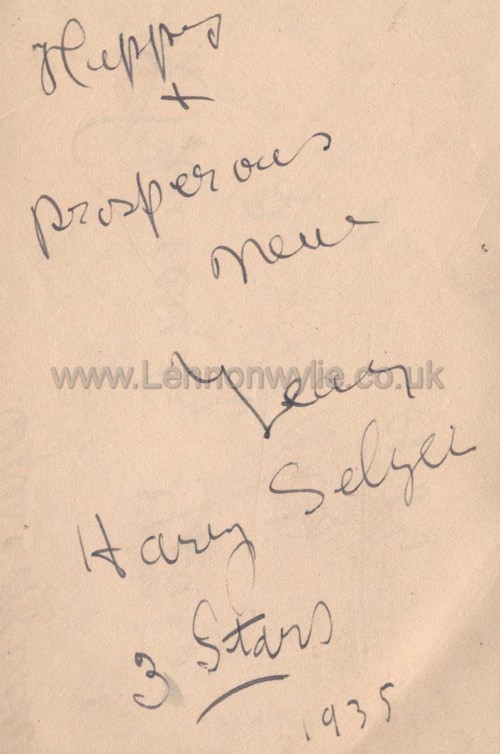 Happy
+
prosperous
New
www.Lennonwylie.co.uk
Year
Harry Selzer
3 Stars
1935